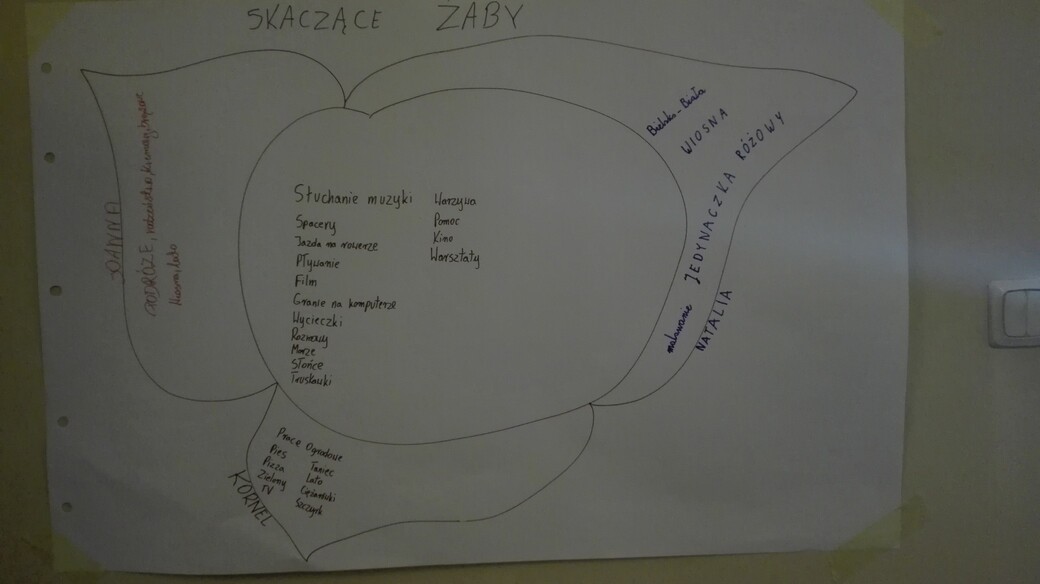 SKACZĄCE ŻABY
JOANNA
PODRÓŻE,
wiosna, lato
Słuchanie muzyki
Spacery
Jazda na rowerze
Pływanie
Film
Granie na komputerze
Wycieczki
Rozmowy
Morze
Słońce
Truskawki
Warzywa
Pomoc
Kino
Warsztaty
Bielsko-Biała
WIOSNA
RÓŻOWY
JEDYNACZKA
malowanie
NATALIA
Prace Ogrodowe
Pies
Pizza
Zielony
TV
Taniec
Lato
Szczyrk
KORNEL